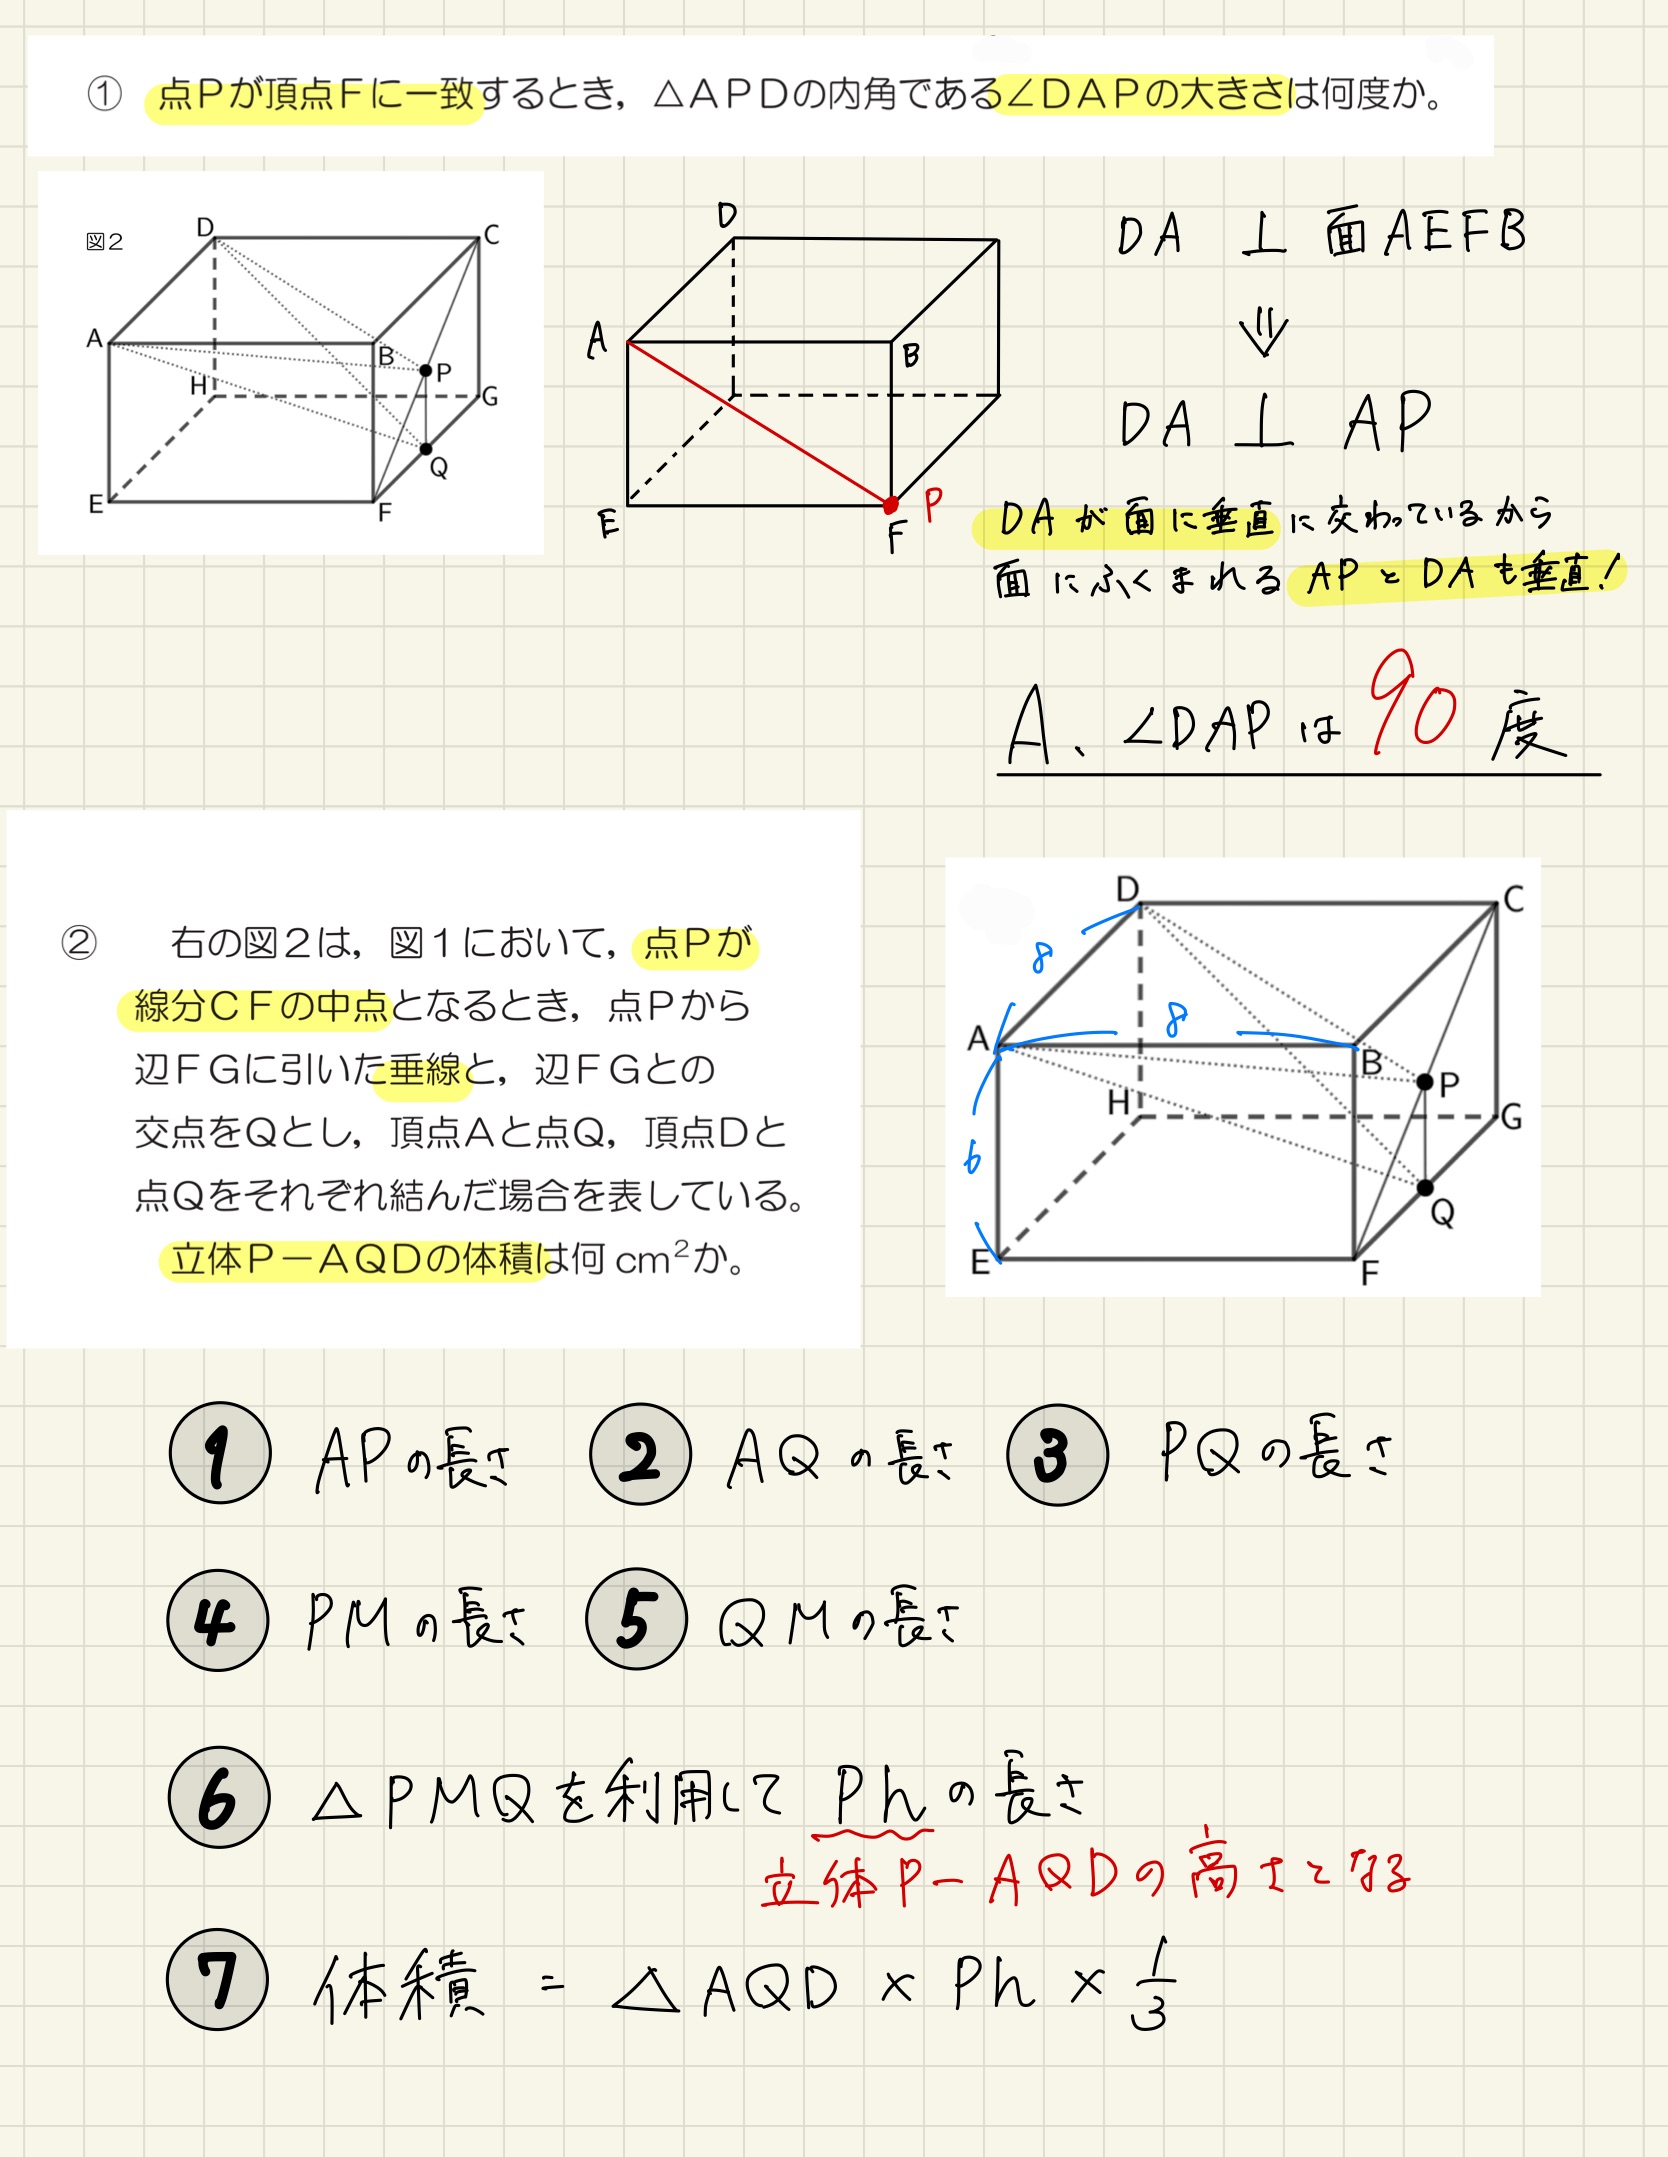 ① 点Pが頂点Fに一致するとき，△APDの内角である∠DAPの大きさは何度か。
図2
D
C
A
B
P
H
G
Q
E
F
D
A
B
E
F
P
DA ⊥ 面AEFB
⇓
DA ⊥ AP
DAが面に垂直に交わっているから
面にふくまれるAPとDAも垂直！
A、∠DAPは90度
② 右の図２は，図１において，点Pが
線分CFの中点となるとき，点Pから
辺FGに引いた垂線と，辺FGとの
交点をQとし，頂点Aと点Q，頂点Dと
点Qをそれぞれ結んだ場合を表している。
立体P－AQDの体積は何cm²か。
D
C
8
A
8
B
P
H
G
6
Q
E
F
1 APの長さ 2 AQの長さ 3 PQの長さ
4 PMの長さ 5 QMの長さ
6 △PMQを利用して Phの長さ
立体P－AQDの高さとなる
7 体積 = △AQD × Ph × 1/3